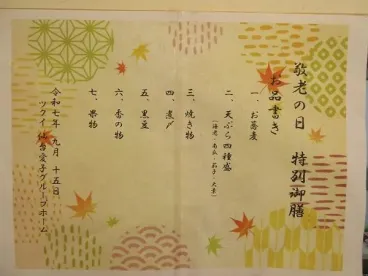 敬老の日 特別御膳
お品書き
一、お蕎麦
二、天ぷら四種盛
三、焼き物
四、煮〆
五、黒豆
六、香の物
七、果物
令和七年 九月 十五日
ツクイ 仙台愛子グループホーム